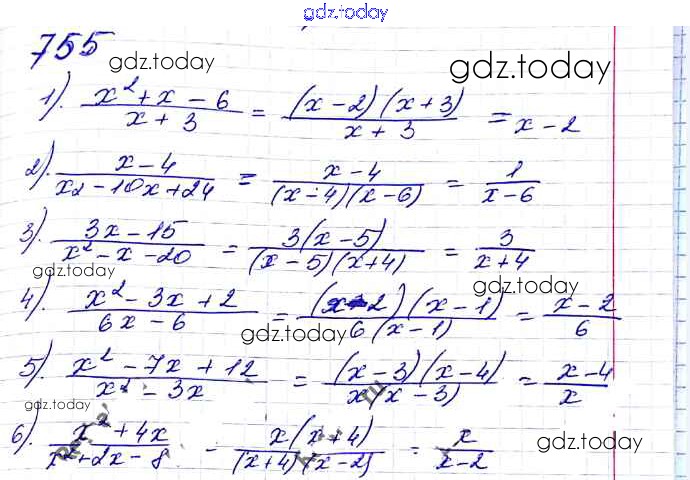 gdz.today
755
gdz.today
gdz.today
1). (x² + x − 6)/(x + 3) = ((x − 2)(x + 3))/(x + 3) = x − 2
2). (x − 4)/(x2 − 10x + 24) = (x − 4)/((x − 4)(x − 6)) = 1/(x − 6)
3). (3x − 15)/(x² − x − 20) = (3(x − 5))/((x − 5)(x + 4)) = 3/(x + 4)
gdz.today
gdz.today
4). (x² − 3x + 2)/(6x − 6) = ((x − 2)(x − 1))/(6(x − 1)) = (x − 2)/6
gdz.today
5). (x² − 7x + 12)/(x² − 3x) = ((x − 3)(x − 4))/(x(x − 3)) = (x − 4)/x
gdz.today
6). (x² + 4x)/(x² + 2x − 8) = (x(x + 4))/((x + 4)(x − 2)) = x/(x − 2)
gdz.today